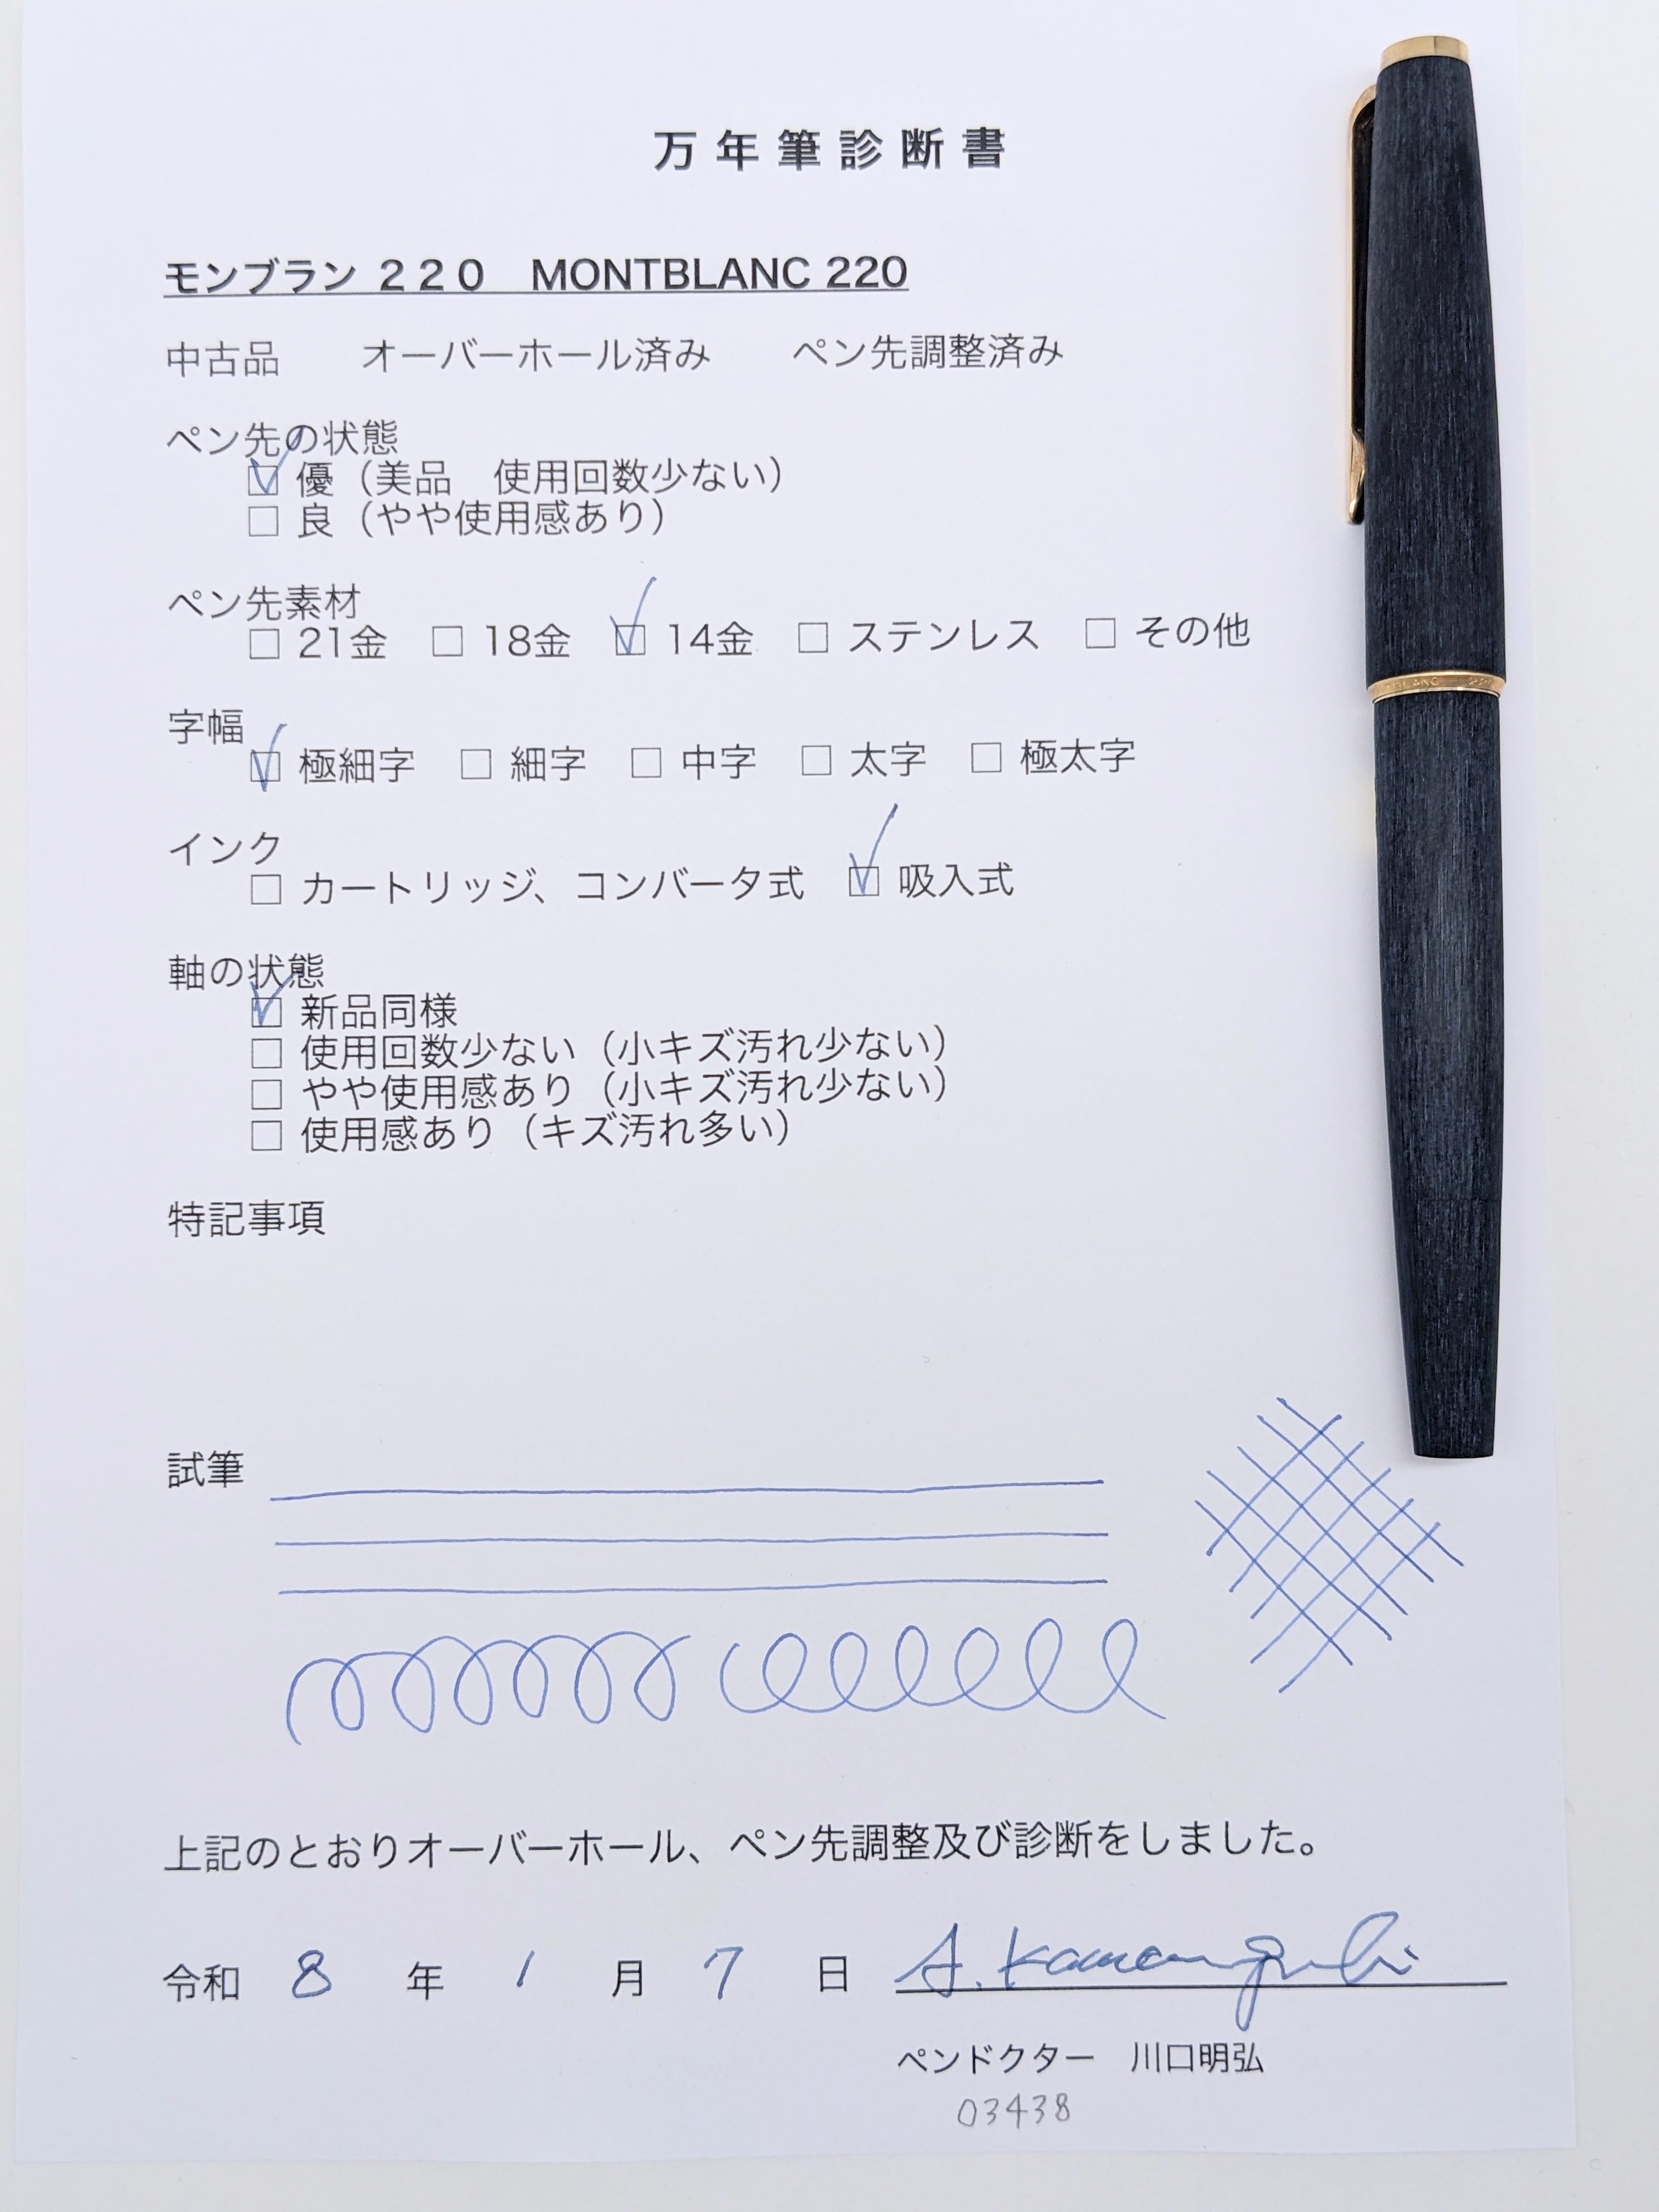 万年筆診断書
モンブラン ２２０　MONTBLANC 220
中古品　　オーバーホール済み　　ペン先調整済み
ペン先の状態
☑ 優（美品　使用回数少ない）
□ 良（やや使用感あり）
ペン先素材
□ 21金　□ 18金　☑ 14金　□ ステンレス　□ その他
字幅
☑ 極細字　□ 細字　□ 中字　□ 太字　□ 極太字
インク
□ カートリッジ、コンバータ式　☑ 吸入式
軸の状態
☑ 新品同様
□ 使用回数少ない（小キズ汚れ少ない）
□ やや使用感あり（小キズ汚れ少ない）
□ 使用感あり（キズ汚れ多い）
特記事項
試筆
上記のとおりオーバーホール、ペン先調整及び診断をしました。
令和　8　年　1　月　7　日　A. Kawaguchi
ペンドクター　川口明弘
03438